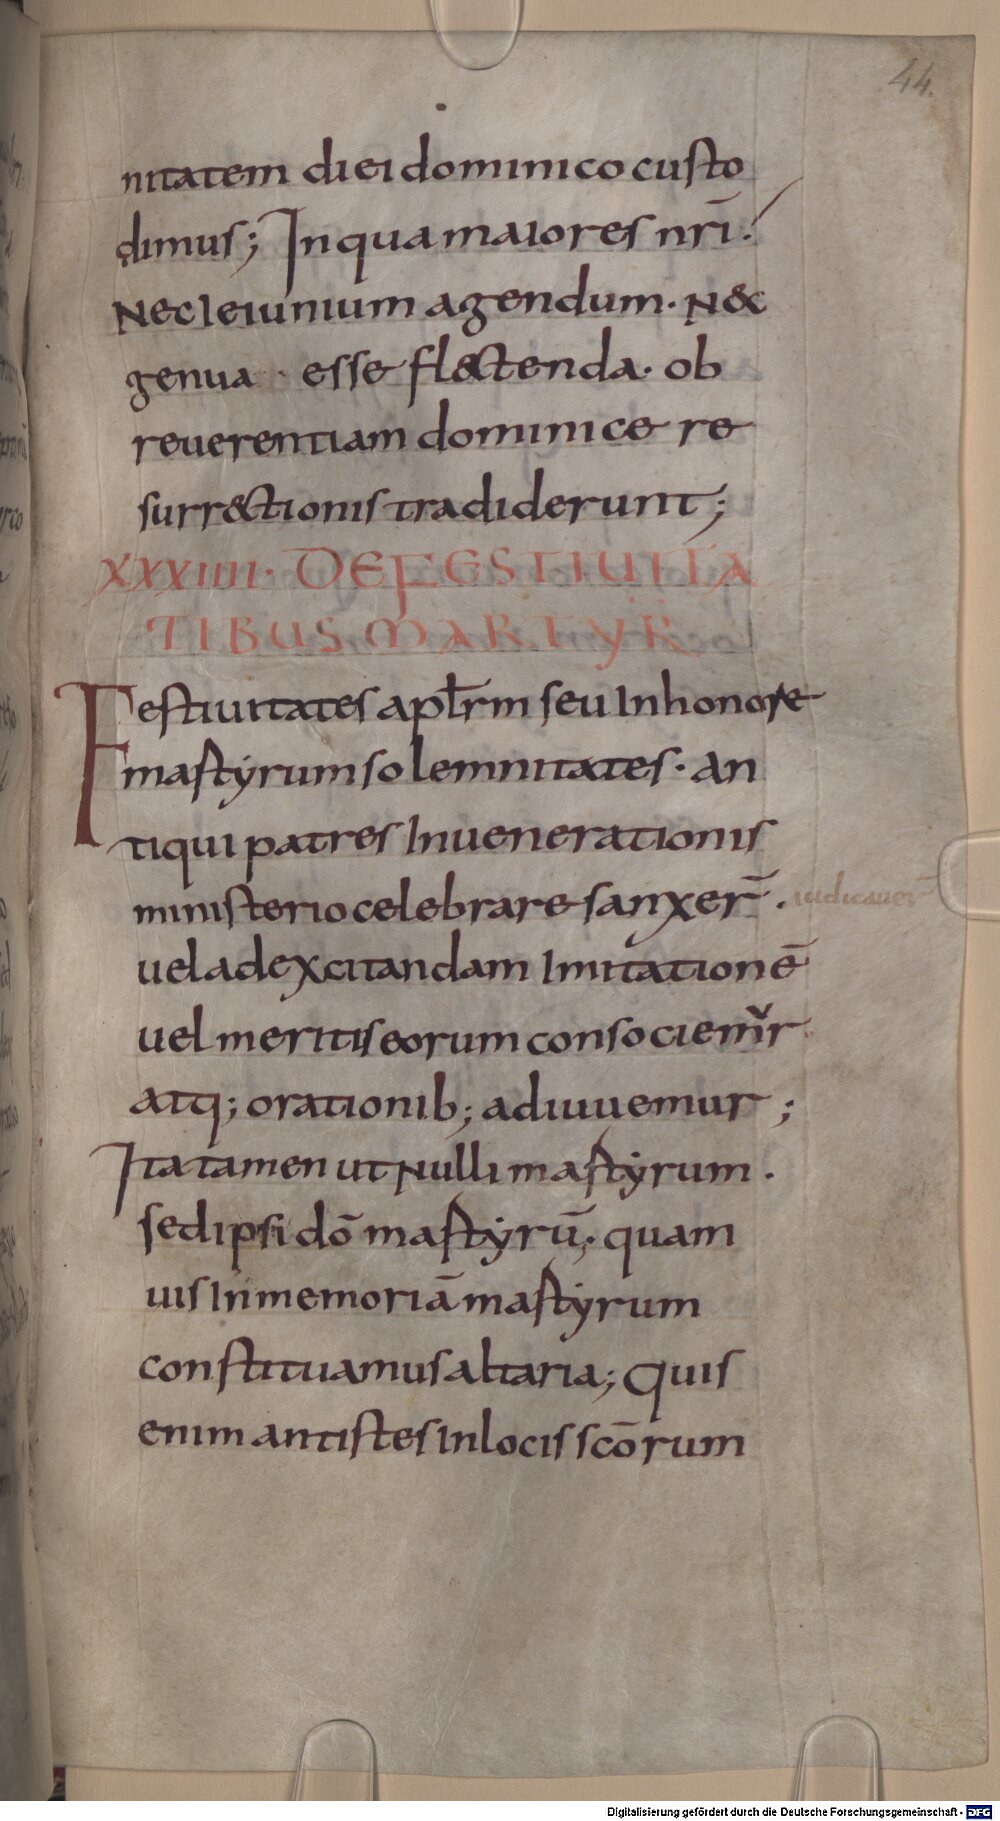 44.
nitatem diei dominico custo
dimus; In qua maiores nr̄i.
Nec ieiunium agendum. N&c
genua esse fl&ctenda. ob
reuerentiam dominice re
surr&ctionis tradiderunt;
XXXIIII. DE FESTIUITA
TIBUS MARTYR̄
Festiuitates aptl̄rm seu In honore
martyrum solemnitates. an
tiqui patres In uenerationis
ministerio celebrare sanxer̄. iudicauer̄
uel ad excitandam Imitationē
uel meritis eorum consociemur
atq; orationib; adiuuemur;
Ita tamen ut Nulli martyrum.
sed ipsi dō martyrū; quam
uis In memoriā martyrum
constituamus altaria; Quis
enim antistes In locis scōrum
Digitalisierung gefördert durch die Deutsche Forschungsgemeinschaft - DFG